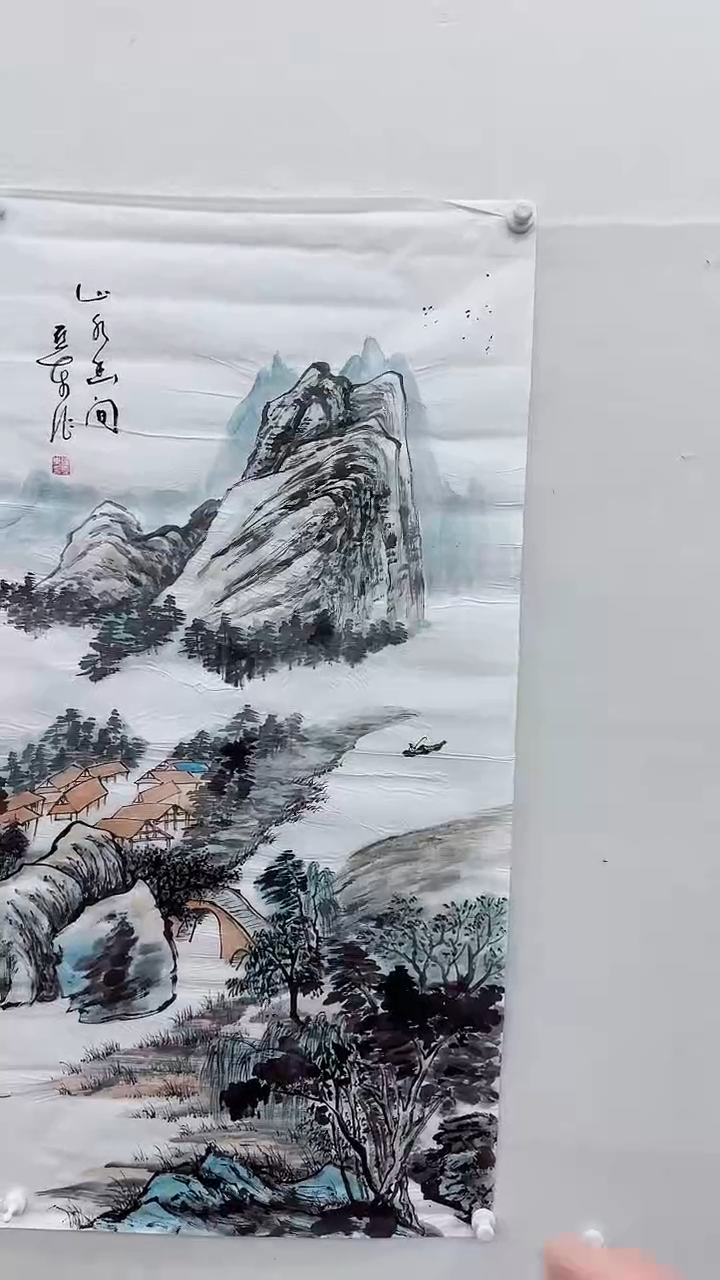 山水画间
亚东作